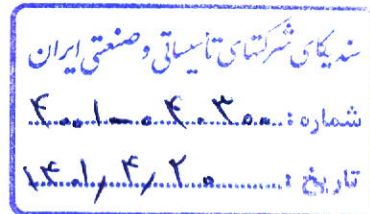 سندیکای شرکتهای تأسیساتی و صنعتی ایران
شماره: ۴۰۰۱-۰۴۰۳۰۰
تاریخ: ۱۴۰۱/۴/۲۰